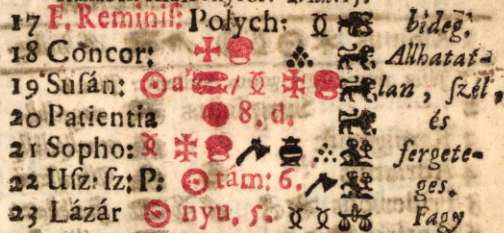 17 F. Reminis: Polych: ☿ bideg,
18 Concor: Allhatat-
19 Susán: ☉ a' lan, szél,
20 Patientia 8. d. és
21 Sopho: fergete-
22 Usz: sz: P: ☉ tám: 6. ges.
23 Lázár ☉ nyu. 5. Fagy